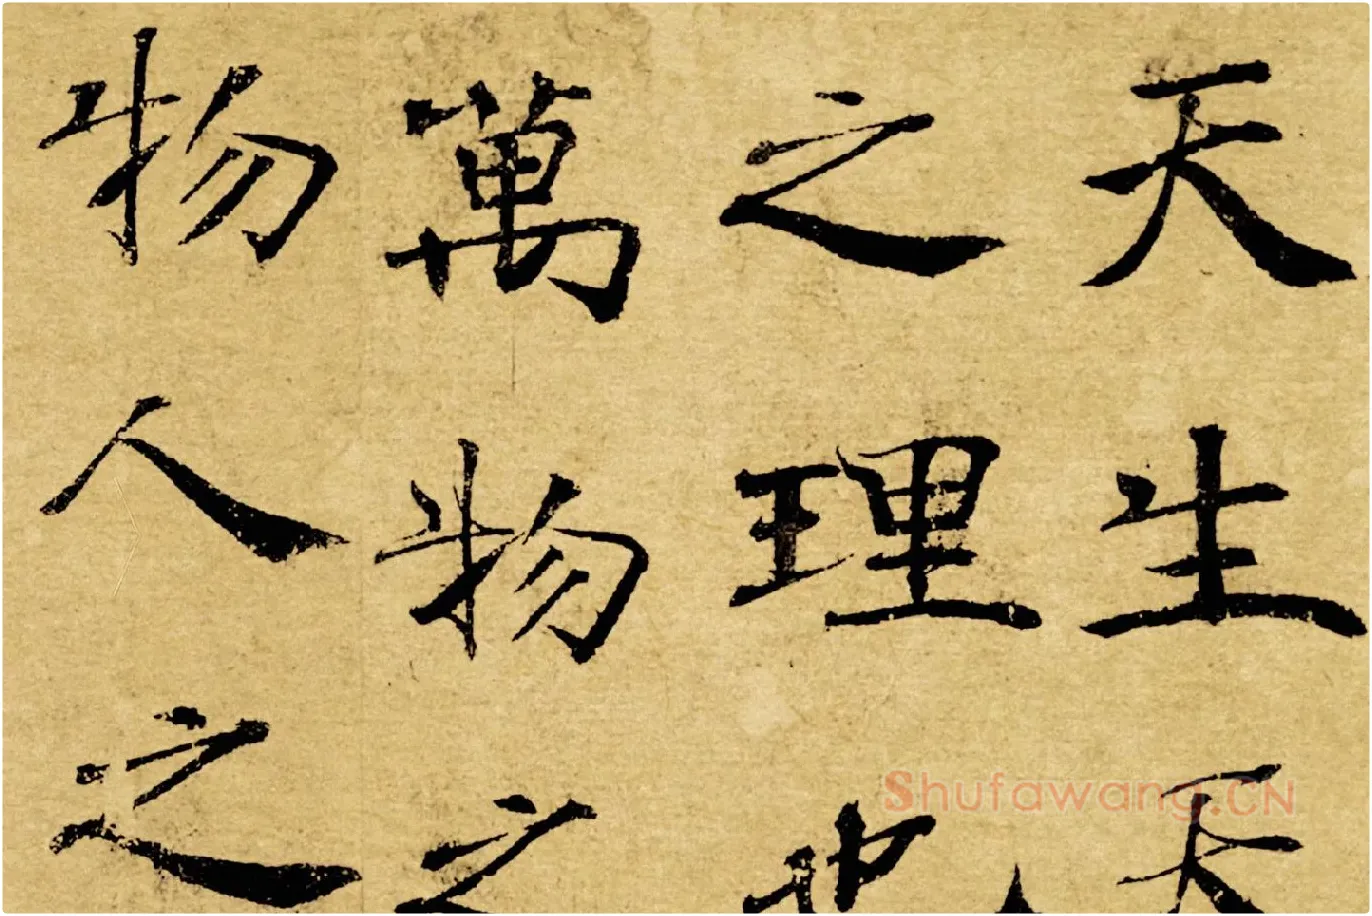 天生天
之理也
萬物之
物人之
Shufawang.CN